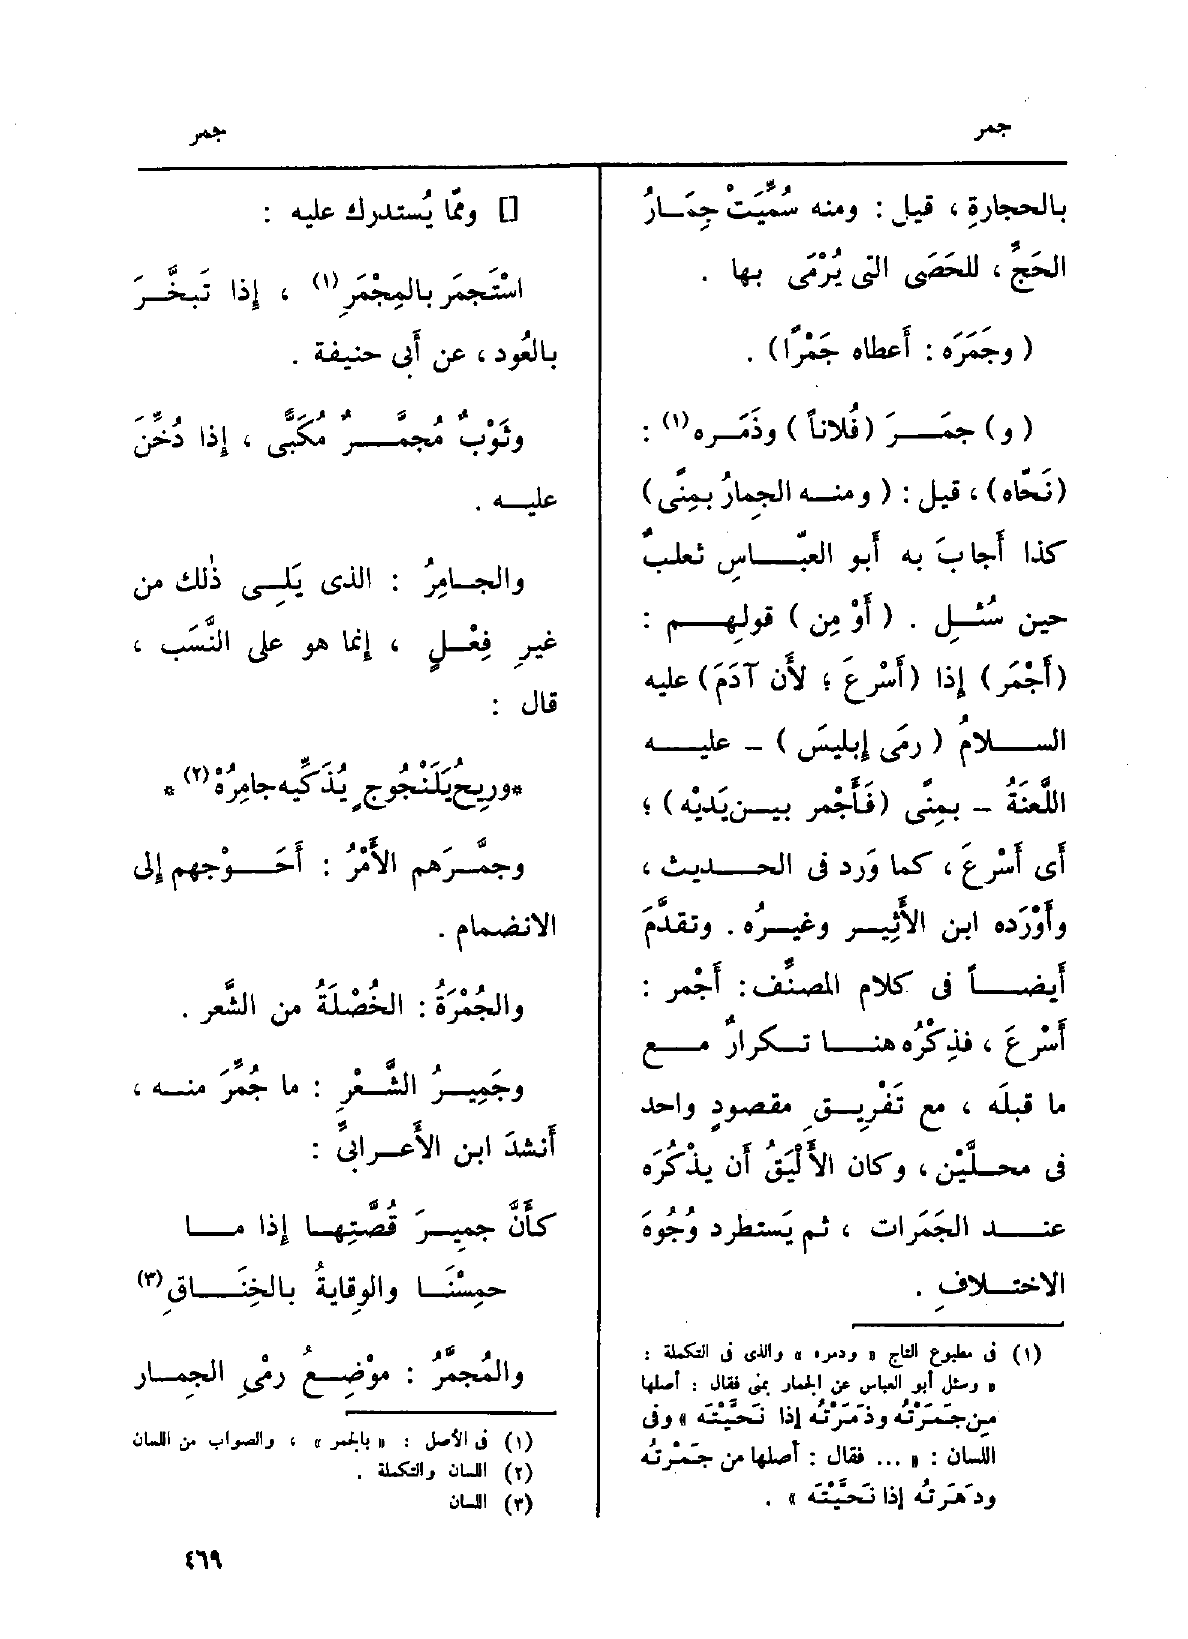 جمر
جمر
بالحجارةِ ، قيل : ومنه سُمِّيَتْ جِمَـارُ
الحَجِّ ، للحَصَى التى يُرْمَى بها .
( وجَمَرَه : أَعطاه جَمْرًا ) .
( و ) جمَـــرَ ( فُلاناً ) وذَمَـره(١) :
( نَحَّاه ) ، قيل : ( ومنـه الجِمارُ بمِنًى )
كذا أَجابَ به أَبو العبَّـاسِ ثعلبٌ
حين سُئِـل . ( أَوْ مِن ) قولِهـم :
( أَجْمَر ) إِذا ( أَسْرعَ ؛ لأَن آدَمَ ) عليه
الســلامُ ( رمَى إِبليسَ ) – عليــه
اللَّعنَةُ – بمِنًى ( فَأَجْمر بيـن يَديْه ) ؛
أَى أَسْرعَ ، كما وَرد فى الحــديث ،
وأَوْرَده ابن الأَثِيــر وغيـرُه . وتقدَّمَ
أَيضــاً فى كلام المصنِّف : أَجْمر :
أَسْرعَ ، فذِكْرُه هنــا تـكرارٌ مــع
ما قبلَه ، مع تَفْرِيـقِ مقصودٍ واحد
فى محلَّيْن ، وكان الأَلْيَقُ أَن يذْكُرَه
عنــد الجَمَرات ، ثم يَستطرد وُجُوهَ
الاختــلافِ .
(١) فى مطبوع التاج « ودمره » والذى فى التكملة :
« وسئل أبو العباس عن الجمار بمنى فقال : أصلها
من جَمَـرْتُه وذمَـرْتُه إذا نَحَّيْتَه » وفى
اللسان : « ... فقال : أصلها من جَمَـرْتُه
ودَهَرتُه إذا نَحَّيْتَه » .
[] وممّا يُستدرك عليه :
اسْتَجمَر بالمِجْمَرِ(١) ، إِذا تَبخَّـرَ
بالعُود ، عن أَبى حنيفة .
وثَوْبٌ مُجمَّـــرٌ مُكَبًّى ، إِذا دُخِّنَ
عليــه .
والجــامِرُ : الذى يَلـى ذٰلك من
غيرِ فِعْـلٍ ، إِنما هو على النَّسَب ،
قال :
*وريحُ يَلَنْجُوجٍ يُذَكِّيه جامِرُهْ(٢) *
وجمَّـرَهم الأَمْرُ : أَحَــوْجهم إِلى
الانضمام .
والجُمْرَةُ : الخُصْلَةُ من الشَّعر .
وجَمِيــرُ الشَّـعْرِ : ما جُمِّرَ منــه ،
أَنشدَ ابن الأَعـرابىِّ :
كأَنَّ جميــرَ قُصَّتِهـا إِذا مــا
حمِسْنَـا والوِقايةُ بالخِنَــاقِ(٣)
والمُجمَّرُ : موْضِــعُ رمْىِ الجِمــار
(١) فى الأصل : « بالجمر » ، والصواب من اللسان
(٢) اللسان والتكملة .
(٣) اللسان
٤٦٩